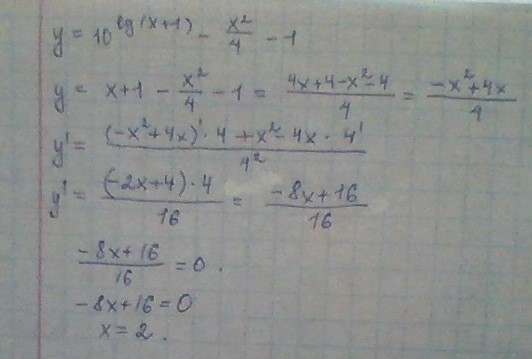 y = 10^lg(x+1) - x²/4 - 1
y = x+1 - x²/4 - 1 = (4x+4-x²-4)/4 = (-x²+4x)/4
y' = ((-x²+4x)'·4 + x²-4x·4')/4²
y' = ((-2x+4)·4)/16 = (-8x+16)/16
(-8x+16)/16 = 0.
-8x+16=0
x=2.